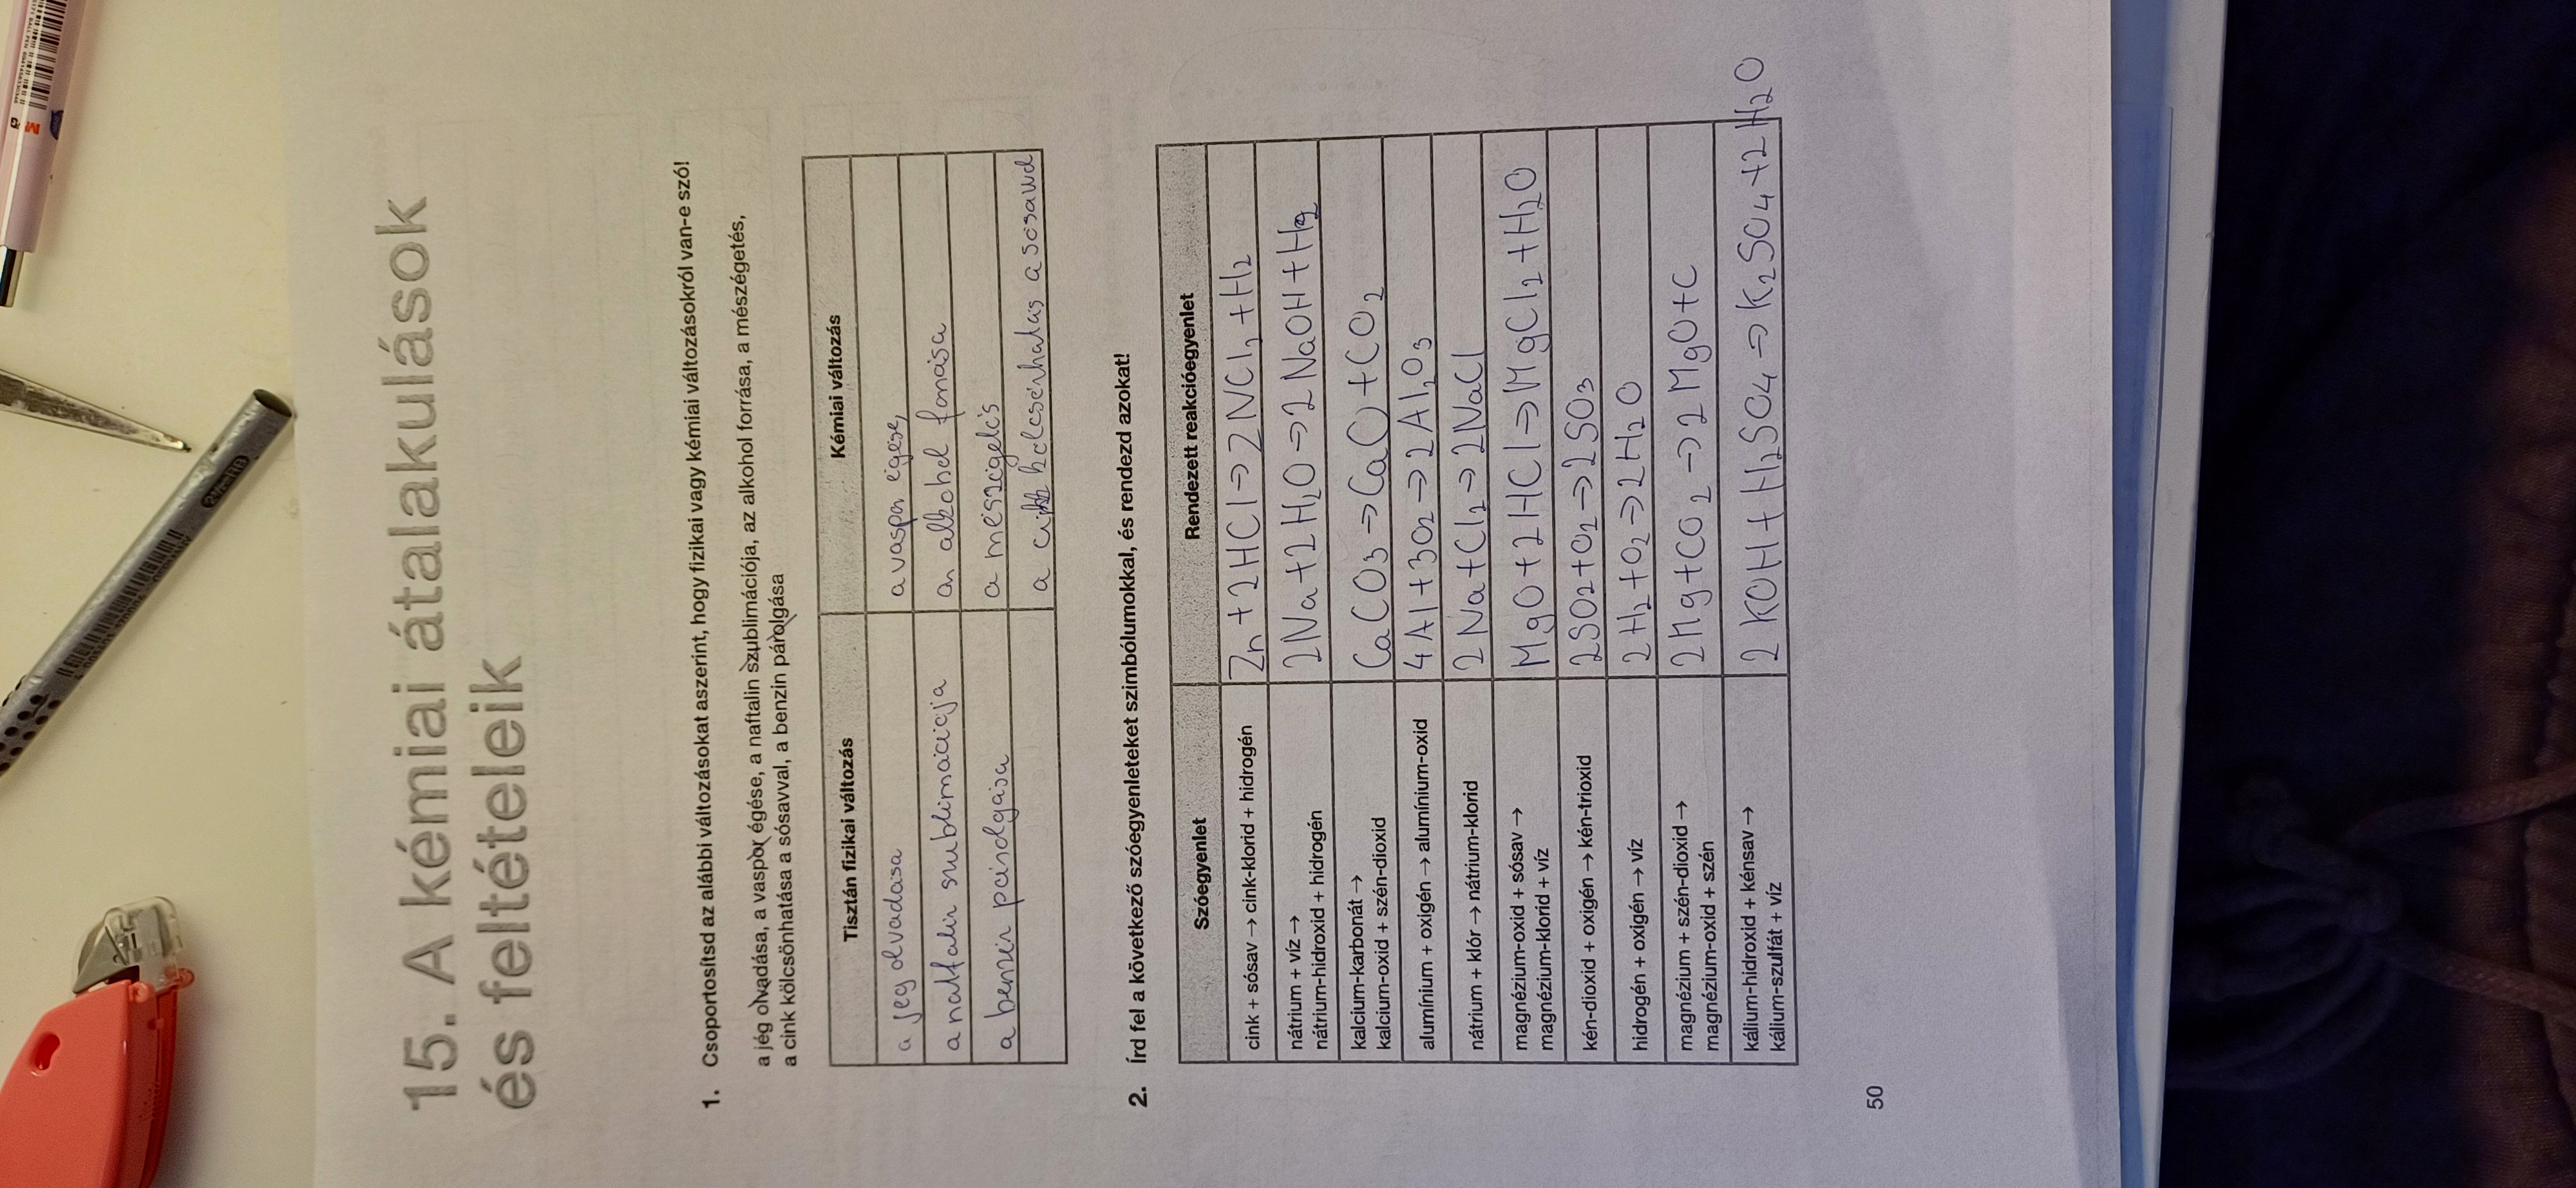 15. A kémiai átalakulások
és feltételeik
1. Csoportosítsd az alábbi változásokat aszerint, hogy fizikai vagy kémiai változásokról van-e szó!
a jég olvadása, a vaspor égése, a naftalin szublimációja, az alkohol forrása, a mészégetés,
a cink kölcsönhatása a sósavval, a benzin párolgása
Tisztán fizikai változás Kémiai változás
a jég olvadása a vaspor égése,
a naftalin sublimációja an alkohol forrása
a benzin párolgása a mészégetés
a cink kölcsönhatás a sósavval
2. Írd fel a következő szóegyenleteket szimbólumokkal, és rendezd azokat!
Szóegyenlet Rendezett reakcióegyenlet
cink + sósav → cink-klorid + hidrogén Zn + 2HCl ⇒ 2NCl₂ + H₂
nátrium + víz →
nátrium-hidroxid + hidrogén 2Na + 2H₂O ⇒ 2NaOH + H₂
kalcium-karbonát →
kalcium-oxid + szén-dioxid CaCO₃ → CaO + CO₂
alumínium + oxigén → alumínium-oxid 4Al + 3O₂ → 2Al₂O₃
nátrium + klór → nátrium-klorid 2Na + Cl₂ ⇒ 2NaCl
magnézium-oxid + sósav →
magnézium-klorid + víz MgO + 2HCl ⇒ MgCl₂ + H₂O
kén-dioxid + oxigén → kén-trioxid 2SO₂ + O₂ ⇒ 2SO₃
hidrogén + oxigén → víz 2H₂ + O₂ ⇒ 2H₂O
magnézium + szén-dioxid →
magnézium-oxid + szén 2Mg + CO₂ → 2MgO + C
kálium-hidroxid + kénsav →
kálium-szulfát + víz 2KOH + H₂SO₄ ⇒ K₂SO₄ + 2H₂O
50